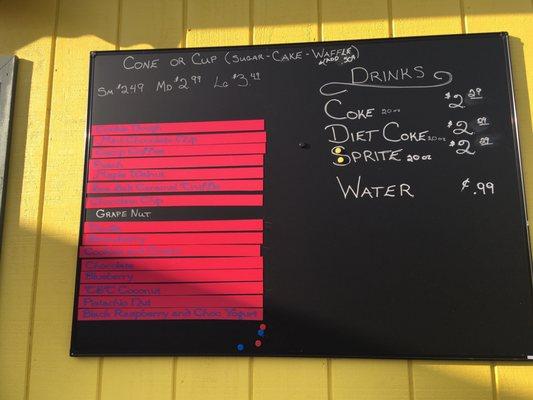 Cone or Cup (Sugar-Cake-Waffle)
(ADD 50¢)
Sm $2.49 Md $2.99 Lg $3.49
Drinks
Coke 20oz $2.29
Diet Coke 20oz $2.09
Sprite 20oz $2.09
Water ¢.99
Cookie Dough
Mint Chocolate Chip
Coffee
Peach
Maple Walnut
Sea Salt Caramel Truffle
Chocolate Chip
Grape Nut
Vanilla
Strawberry
Chocolate
Blueberry
Coconut
Pistachio Nut
Black Raspberry and Choc Yogurt